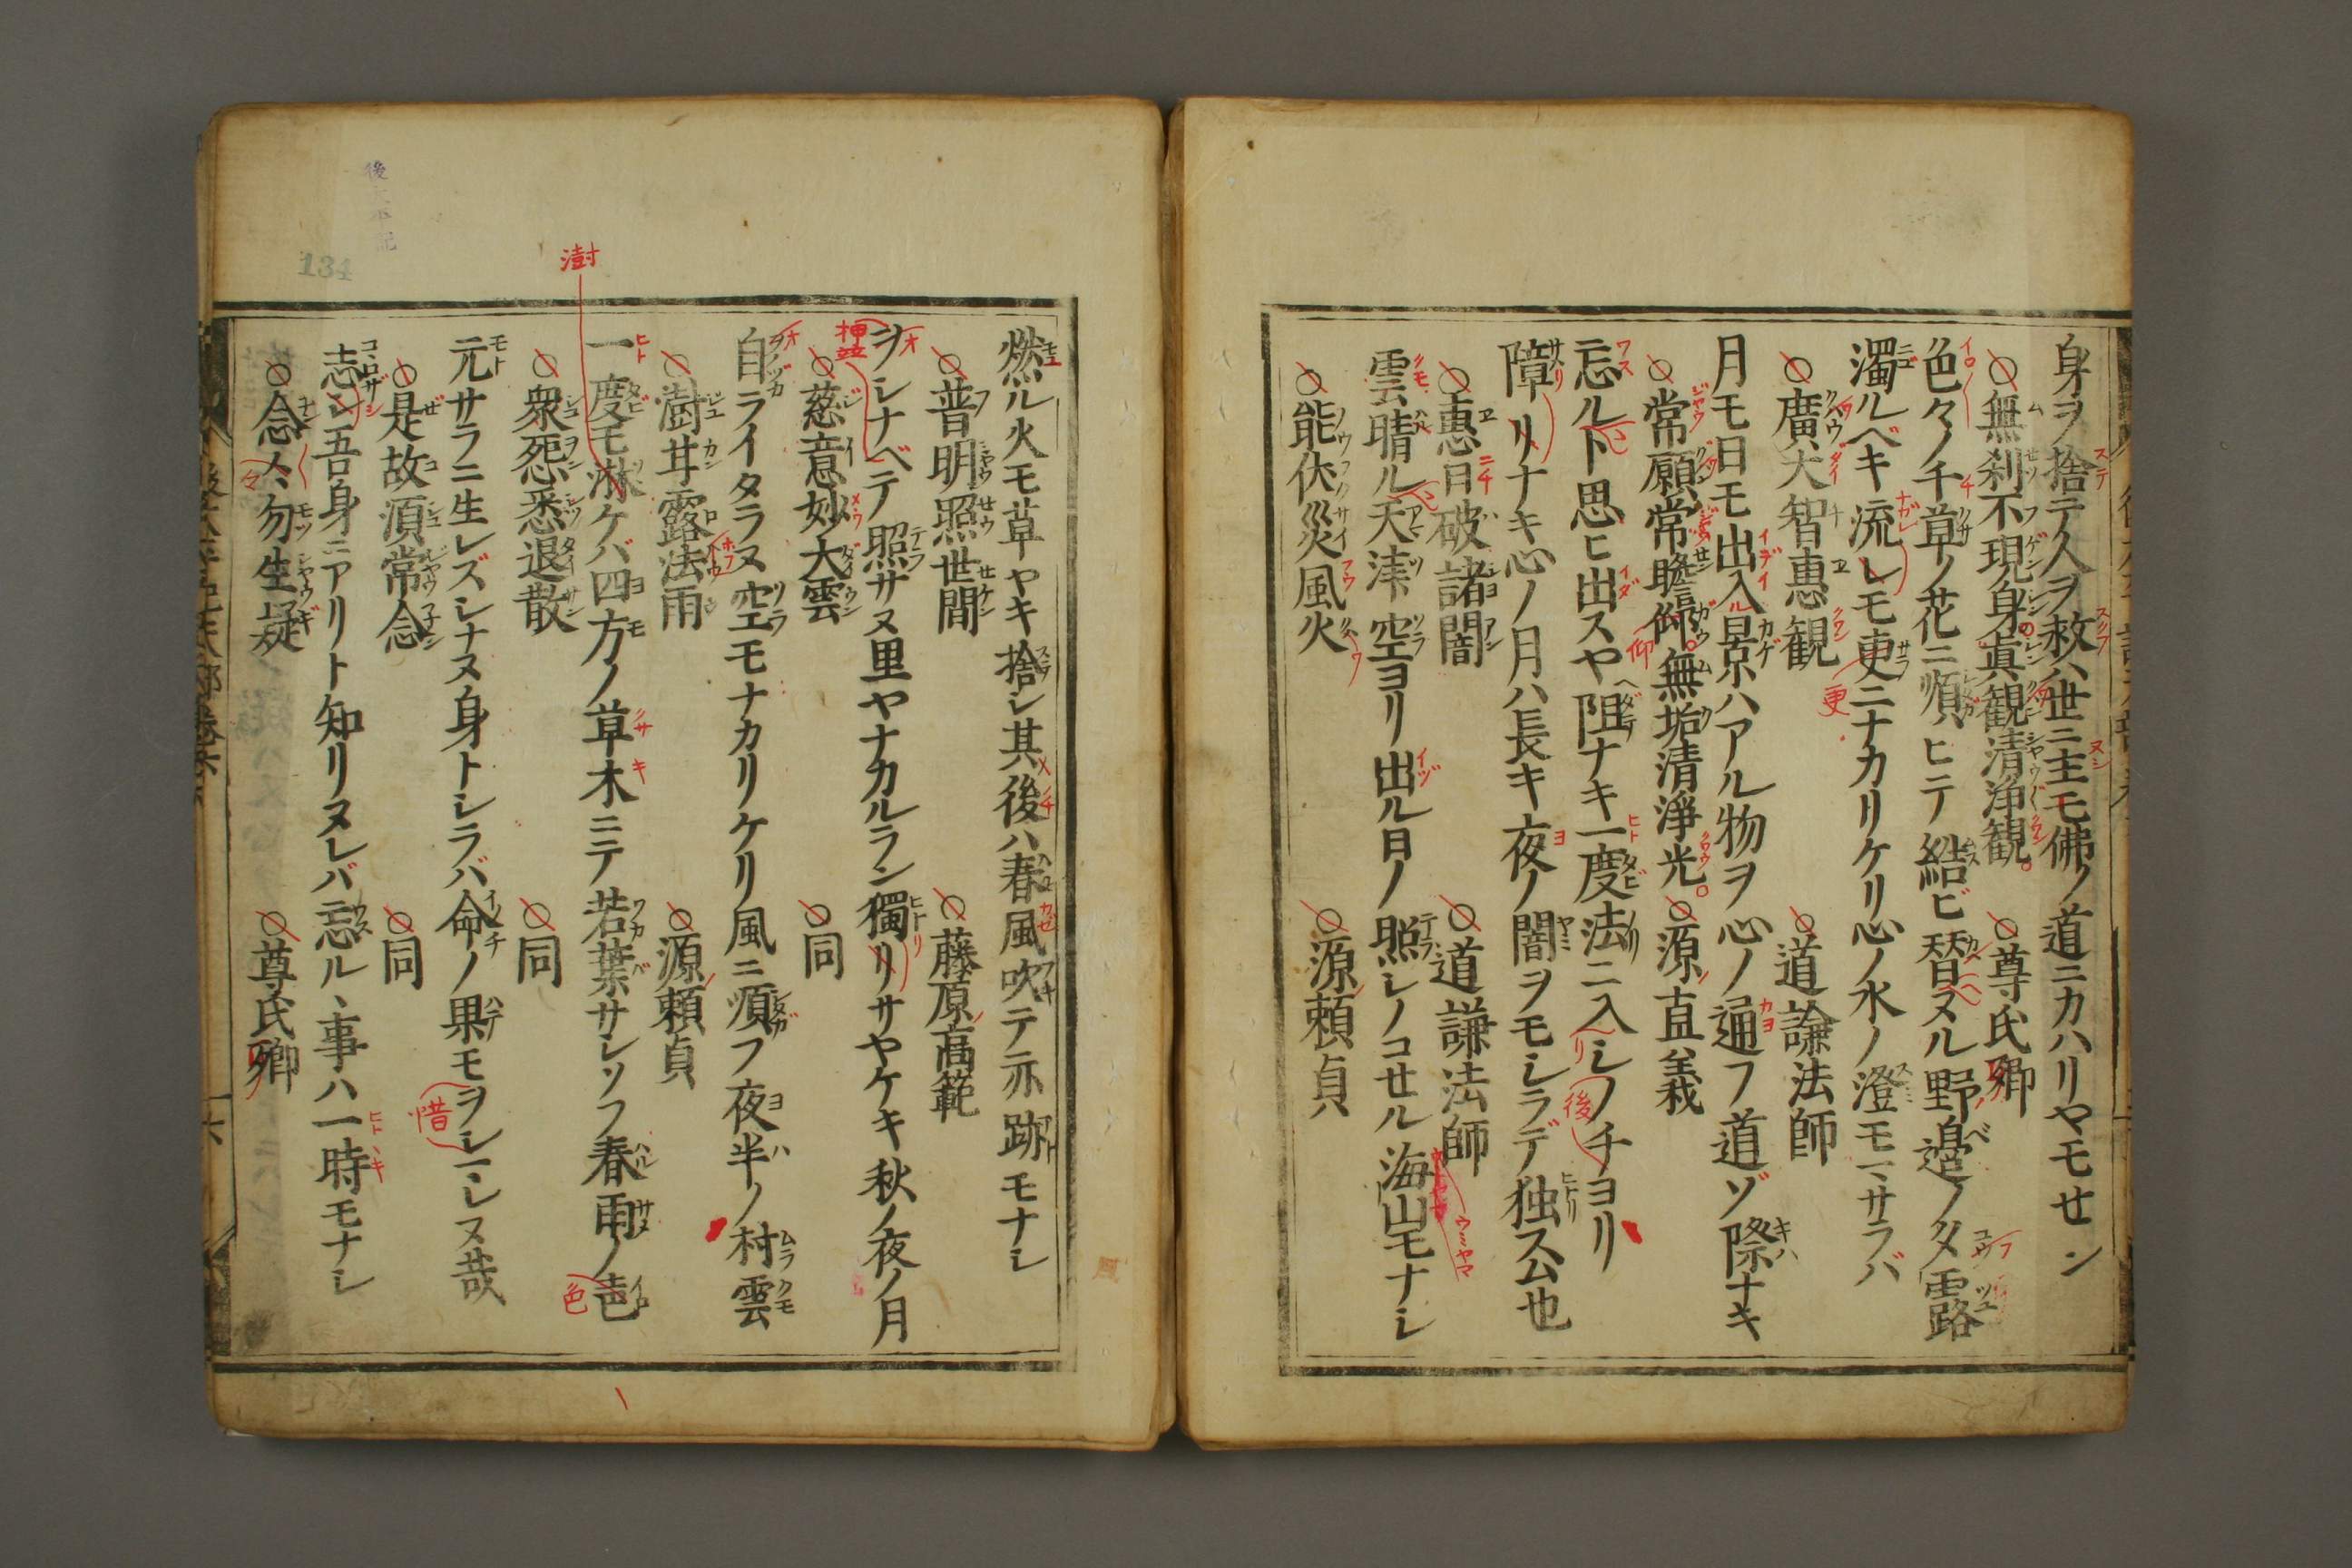 身ヲ捨テ人ヲ救ハ世ニ主モ佛ノ道ニカハリヤモセン
○無刹不現身眞観清浄観 ○尊氏卿
色々ノ千草ノ花ニ順ヒテ結ビ替ヌル野邉ノタ露
濁ルベキ流レモ更ニナカリケリ心ノ水ノ澄モマサラバ
○廣大智惠観 ○道謙法師
月モ日モ出入景ハアル物ヲ心ノ通フ道ゾ際ナキ
○常願常瞻仰無垢清淨光 ○源直義
忘ルト思ヒ出スヤ阻ナキ一度法ニ入シノチヨリ
障リナキ心ノ月ハ長キ夜ノ闇ヲモシラデ独スム也
○惠日破諸闇 ○道謙法師
雲晴ル天津空ヨリ出ル日ノ照シノコセル海山モナシ
○能伏災風火 ○源頼貞
燃ル火モ草ヤキ捨シ其後ハ春風吹テ亦跡モナシ
○普明照世間 ○藤原高範
ヲシナベテ照サヌ里ヤナカルラン獨リサヤケキ秋ノ夜ノ月
○慈意妙大雲 ○同
自ライタラヌ空モナカリケリ風ニ順フ夜半ノ村雲
○澍甘露法雨 ○源頼貞
一度モ淋ケバ四方ノ草木ニテ若葉サレソフ春雨ノ色
○衆怨悉退散 ○同
元サラニ生レズシナヌ身トシラバ命ノ果モヲシマシヌ哉
○是故須常念 ○同
志シ吾身ニアリト知リヌレバ忘ルヽ事ハ一時モナシ
○念々勿生疑 ○尊氏卿
澍
押並
色
惜
更
仰
後
134